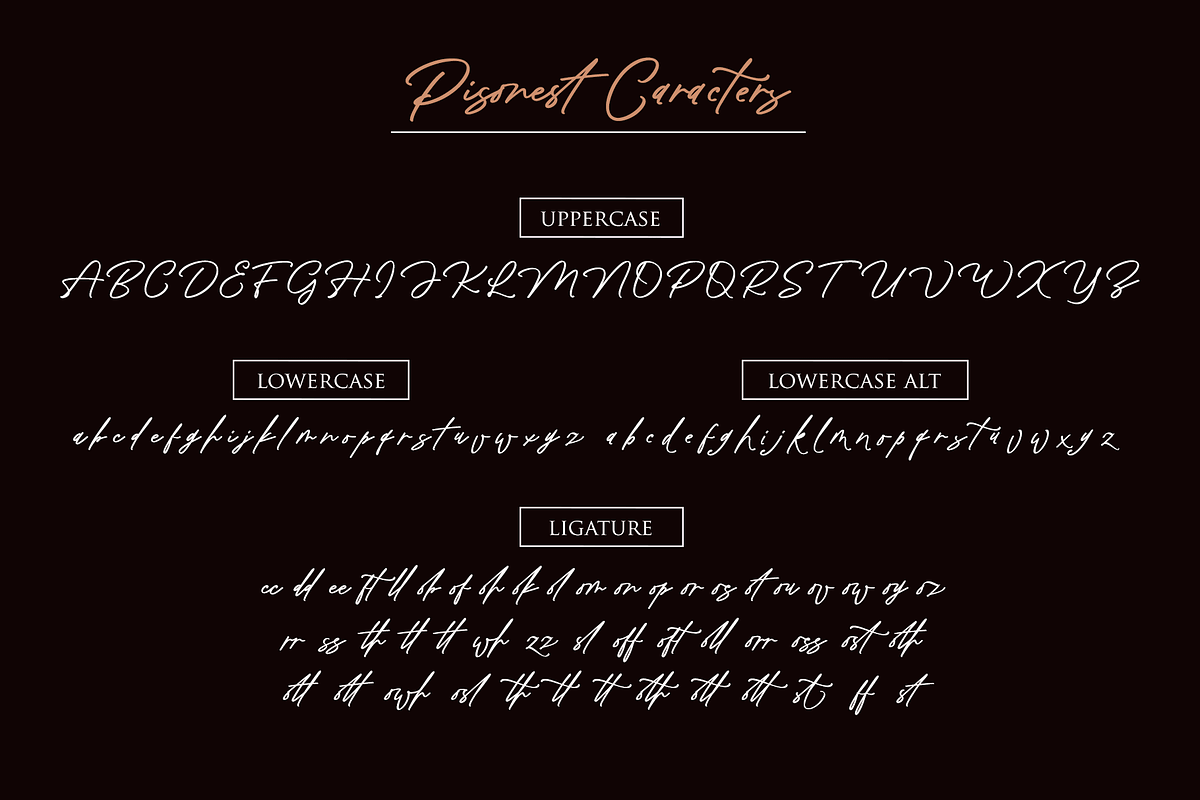 Pisonest Caracters
UPPERCASE
ABCDEFGHIJKLMNOPQRSTUVWXYZ
LOWERCASE
LOWERCASE ALT
abcdefghijklmnopqrstuvwxyz abcdefghijklmnopqrstuvwxyz
LIGATURE
cc dd ee ft ll ob of oh ok ol om on op or os ot ou ov ow oy oz
rr ss th tl tt wh zz sl off oft oll orr oss ost oth
otl ott owh osl th tl tt oth otl ott st ff st